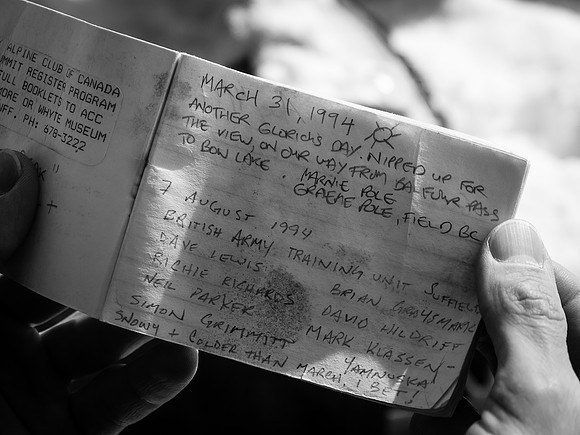 ALPINE CLUB OF CANADA
SUMMIT REGISTER PROGRAM
FULL BOOKLETS TO ACC
MORE OR WHYTE MUSEUM
BANFF. PH: 678-3222
MARCH 31, 1994
ANOTHER GLORIOUS DAY. NIPPED UP FOR
THE VIEW, ON OUR WAY FROM BALFOUR PASS
TO BOW LAKE. MARNIE POLE
GRAEME POLE, FIELD BC
7 AUGUST 1994
BRITISH ARMY TRAINING UNIT SUFFIELD
DAVE LEWIS BRIAN
RICHIE RICHARDS DAVID HILDRIFF
NEIL PARKER MARK KLASSEN -
SIMON GRIMMITT YAMNUSKA!
SNOWY + COLDER THAN MARCH, I BET!